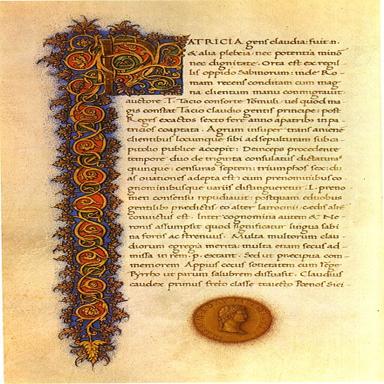 PATRICIA gens claudia: fuit .n.
& alia plebeia: nec potentia minor
nec dignitate. Orta est ex regil
lis oppido Sabinorum: inde Ro-
mam recens conditam cum mag
na clientium manu conmigravit
auctore T. Tacio consorte Romuli: vel quod ma
gis constat Tacio claudio gentis principe: post
Reges exactos sexto fere anno a patribus in pa
tricios cooptata. Agrum insuper trans anienem
clientibus locumque sibi ad sepulturam sub ca
pitolio publice accepit: Deinceps procedente
tempore duo de triginta consulatus dictaturas
quinque: censuras septem: triumphos sex: du
as ovationes adepta est: cum prenominibus co
gnominibusque variis distingueretur. L. preno
men consensu repudiavit: postquam e duobus
gentilibus preditis eo alter latrocinii: cedis alter
convictus est. Inter cognomina autem & Ne-
ronis assumpsit quod significatur lingua sabi
na fortis ac strenuus. Multa multorum clau
diorum egregia merita: multa etiam secus ad-
missa in rem .p. extant. Sed ut precipua com-
memorem Appius cecus societatem cum rege
Pyrrho ut parum salubrem dissuasit. Claudius
caudex primus freto classe traiecto Poenos Sici